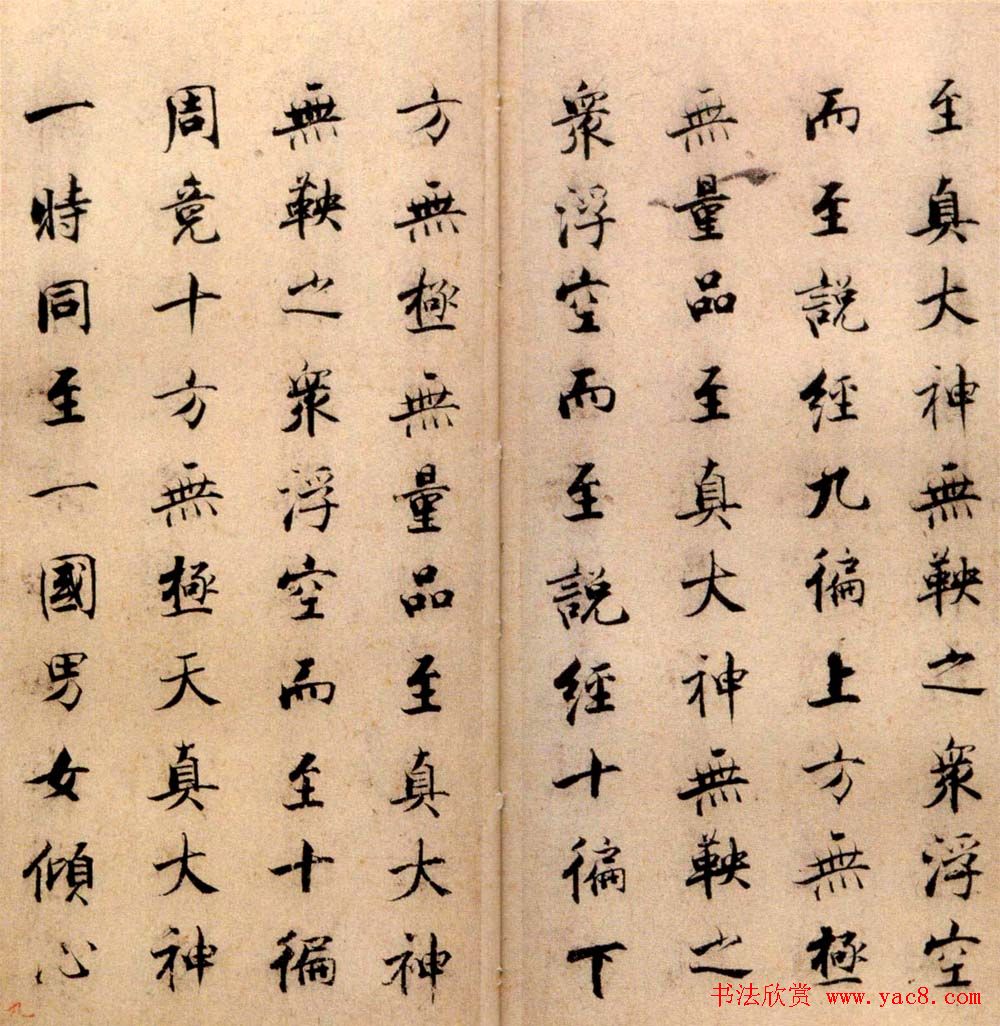 至真大神無鞅之衆浮空
而至說經九徧上方無極
無量品至真大神無鞅之
衆浮空而至説經十徧下
方無極無量品至真大神
無鞅之衆浮空而至十徧
周竟十方無極天真大神
一時同至一國男女傾心
书法欣赏 www.yac8.com